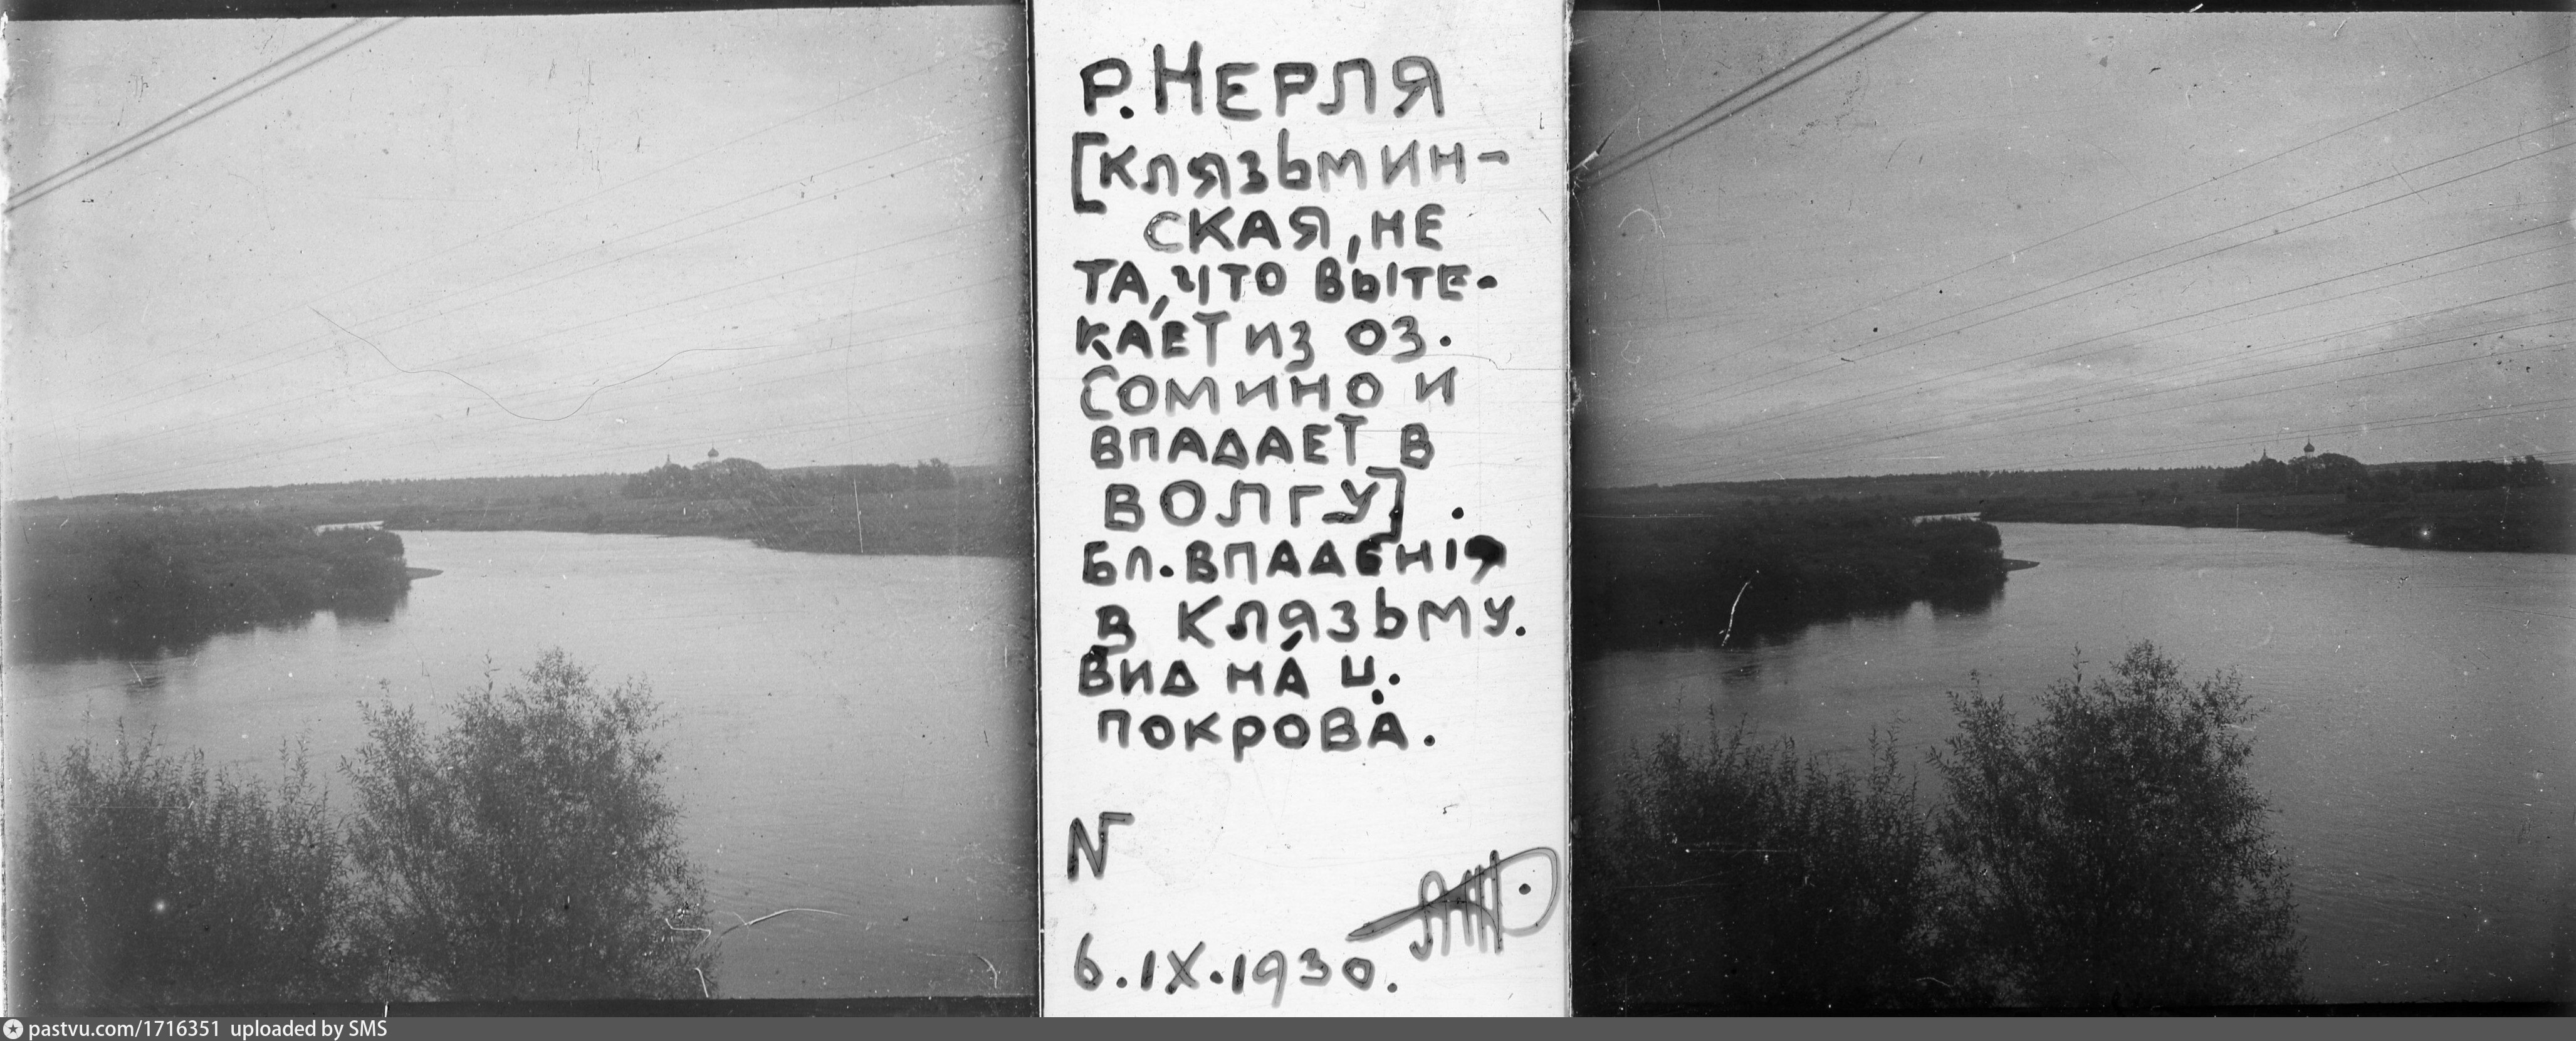 Р. НЕРЛЯ
[КЛЯЗЬМИН-
СКАЯ, НЕ
ТА, ЧТО ВЫТЕ-
КАЕТ ИЗ ОЗ.
СОМИНО И
ВПАДАЕТ В
ВОЛГУ].
БЛ. ВПАДЕНІЯ
В КЛЯЗЬМУ.
ВИД НА Ц.
ПОКРОВА.
N
6.IX.1930.
pastvu.com/1716351 uploaded by SMS